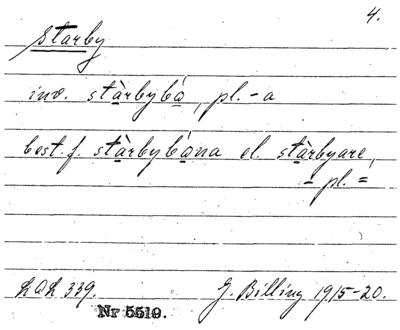 4.
Starby
inv. stàrbybo̱, pl. -a
best. f. stàrbybo̱na el. stàrbyare,
- pl. =
LAL 339. G. Billing 1915-20.
Nr 5519.